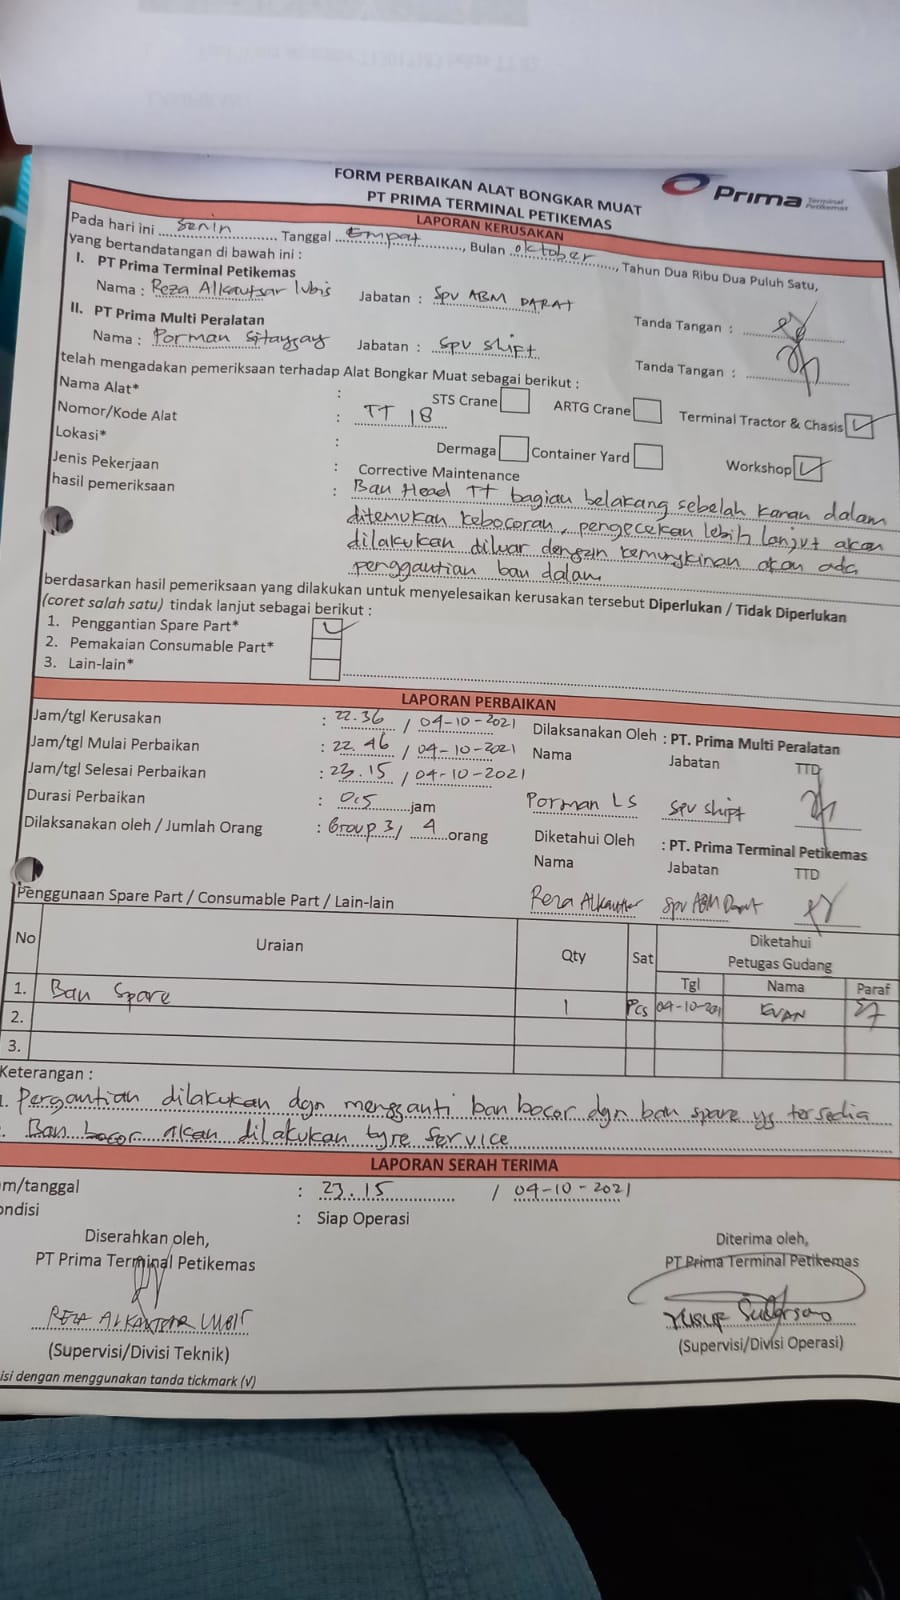 FORM PERBAIKAN ALAT BONGKAR MUAT
PT PRIMA TERMINAL PETIKEMAS
Prima Terminal Petikemas
LAPORAN KERUSAKAN
Pada hari ini Senin Tanggal Empat, Bulan Oktober, Tahun Dua Ribu Dua Puluh Satu,
yang bertandatangan di bawah ini :
I. PT Prima Terminal Petikemas
Nama : Reza Alkautsar Lubis Jabatan : Spv ABM DARAT Tanda Tangan :
II. PT Prima Multi Peralatan
Nama : Porman Jabatan : Spv shift Tanda Tangan :
telah mengadakan pemeriksaan terhadap Alat Bongkar Muat sebagai berikut :
Nama Alat* : STS Crane ARTG Crane Terminal Tractor & Chasis ✓
Nomor/Kode Alat : TT 18
Lokasi* : Dermaga Container Yard Workshop ✓
Jenis Pekerjaan : Corrective Maintenance
hasil pemeriksaan : Ban Head TT bagian belakang sebelah kanan dalam
ditemukan kebocoran, pengecekan lebih lanjut akan
dilakukan diluar dengan kemungkinan akan ada
penggantian ban dalam
berdasarkan hasil pemeriksaan yang dilakukan untuk menyelesaikan kerusakan tersebut Diperlukan / Tidak Diperlukan
(coret salah satu) tindak lanjut sebagai berikut :
1. Penggantian Spare Part* ✓
2. Pemakaian Consumable Part*
3. Lain-lain*
LAPORAN PERBAIKAN
Jam/tgl Kerusakan : 22.36 / 04-10-2021 Dilaksanakan Oleh : PT. Prima Multi Peralatan
Jam/tgl Mulai Perbaikan : 22.46 / 04-10-2021 Nama Jabatan TTD
Jam/tgl Selesai Perbaikan : 23.15 / 04-10-2021
Durasi Perbaikan : 0.5 jam Porman LS Spv shift
Dilaksanakan oleh / Jumlah Orang : Group 3 / 4 orang Diketahui Oleh : PT. Prima Terminal Petikemas
Nama Jabatan TTD
Penggunaan Spare Part / Consumable Part / Lain-lain Reza Alkautsar Spv ABM Darat
No Uraian Qty Sat Diketahui Petugas Gudang
Tgl Nama Paraf
1. Ban Spare 1 Pcs 04-10-2021 EVAN
2.
3.
Keterangan :
1. Pergantian dilakukan dgn mengganti ban bocor dgn ban spare yg tersedia
. Ban bocor akan dilakukan tyre service
LAPORAN SERAH TERIMA
m/tanggal : 23.15 / 04-10-2021
ondisi : Siap Operasi
Diserahkan oleh, Diterima oleh,
PT Prima Terminal Petikemas PT Prima Terminal Petikemas
REZA ALKAUTSAR LUBIS YUSUF Sudarsono
(Supervisi/Divisi Teknik) (Supervisi/Divisi Operasi)
isi dengan menggunakan tanda tickmark (√)